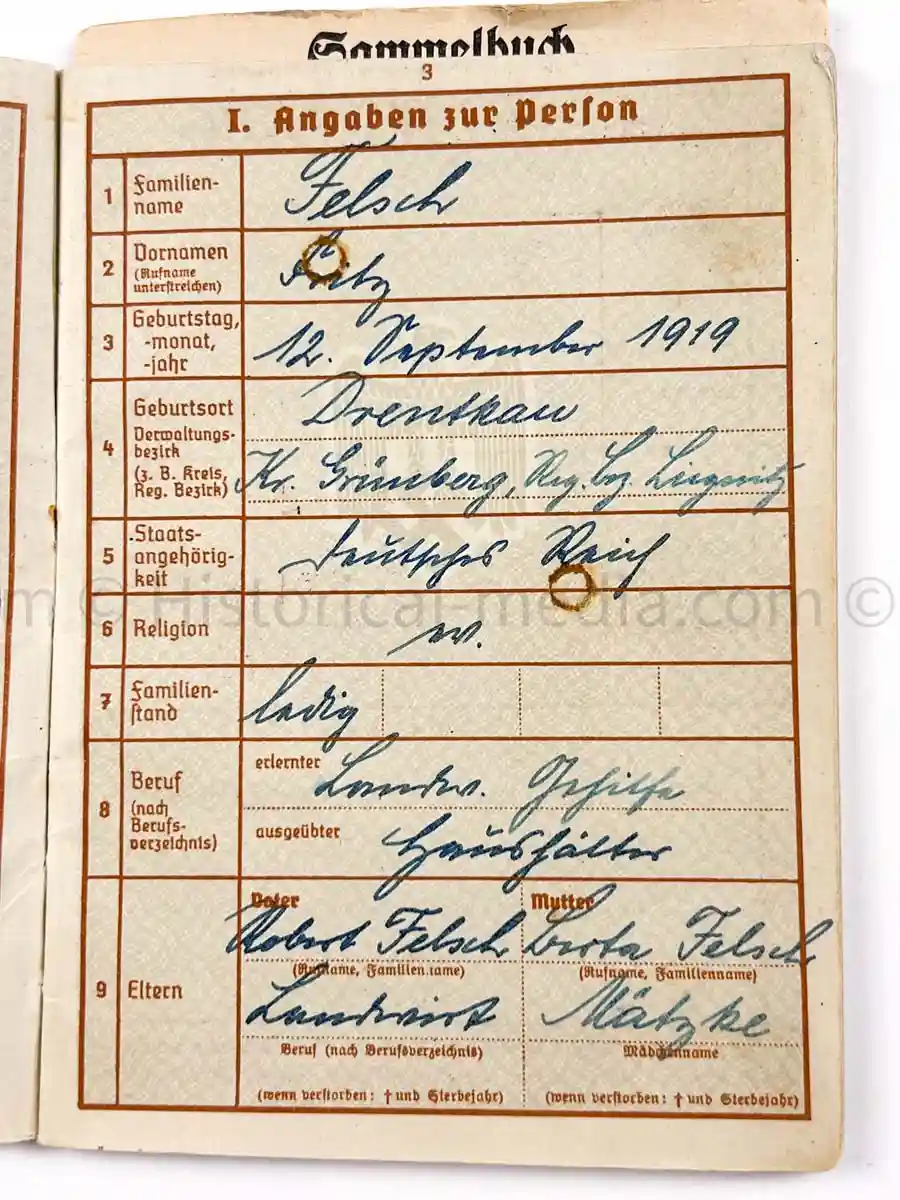 Sammelbuch
3
I. Angaben zur Person
1 Familien-
name
Felsch
2 Vornamen
(Rufname
unterstreichen)
Fritz
3 Geburtstag,
-monat,
-jahr
12. September 1919
4 Geburtsort
Verwaltungs-
bezirk
(z. B. Kreis,
Reg. Bezirk)
Drentkau
Kr. Grünberg, Reg. Bez. Liegnitz
5 Staats-
angehörig-
keit
deutsches Reich
© Historical-media.com ©
6 Religion
ev.
7 Familien-
stand
ledig
8 Beruf
(nach
Berufs-
verzeichnis)
erlernter Landw. Gehilfe
ausgeübter Haushälter
9 Eltern
Vater Mutter
Robert Felsch Berta Felsch
(Rufname, Familienname) (Rufname, Familienname)
Landwirt Mätzke
Beruf (nach Berufsverzeichnis) Mädchenname
(wenn verstorben: † und Sterbejahr) (wenn verstorben: † und Sterbejahr)